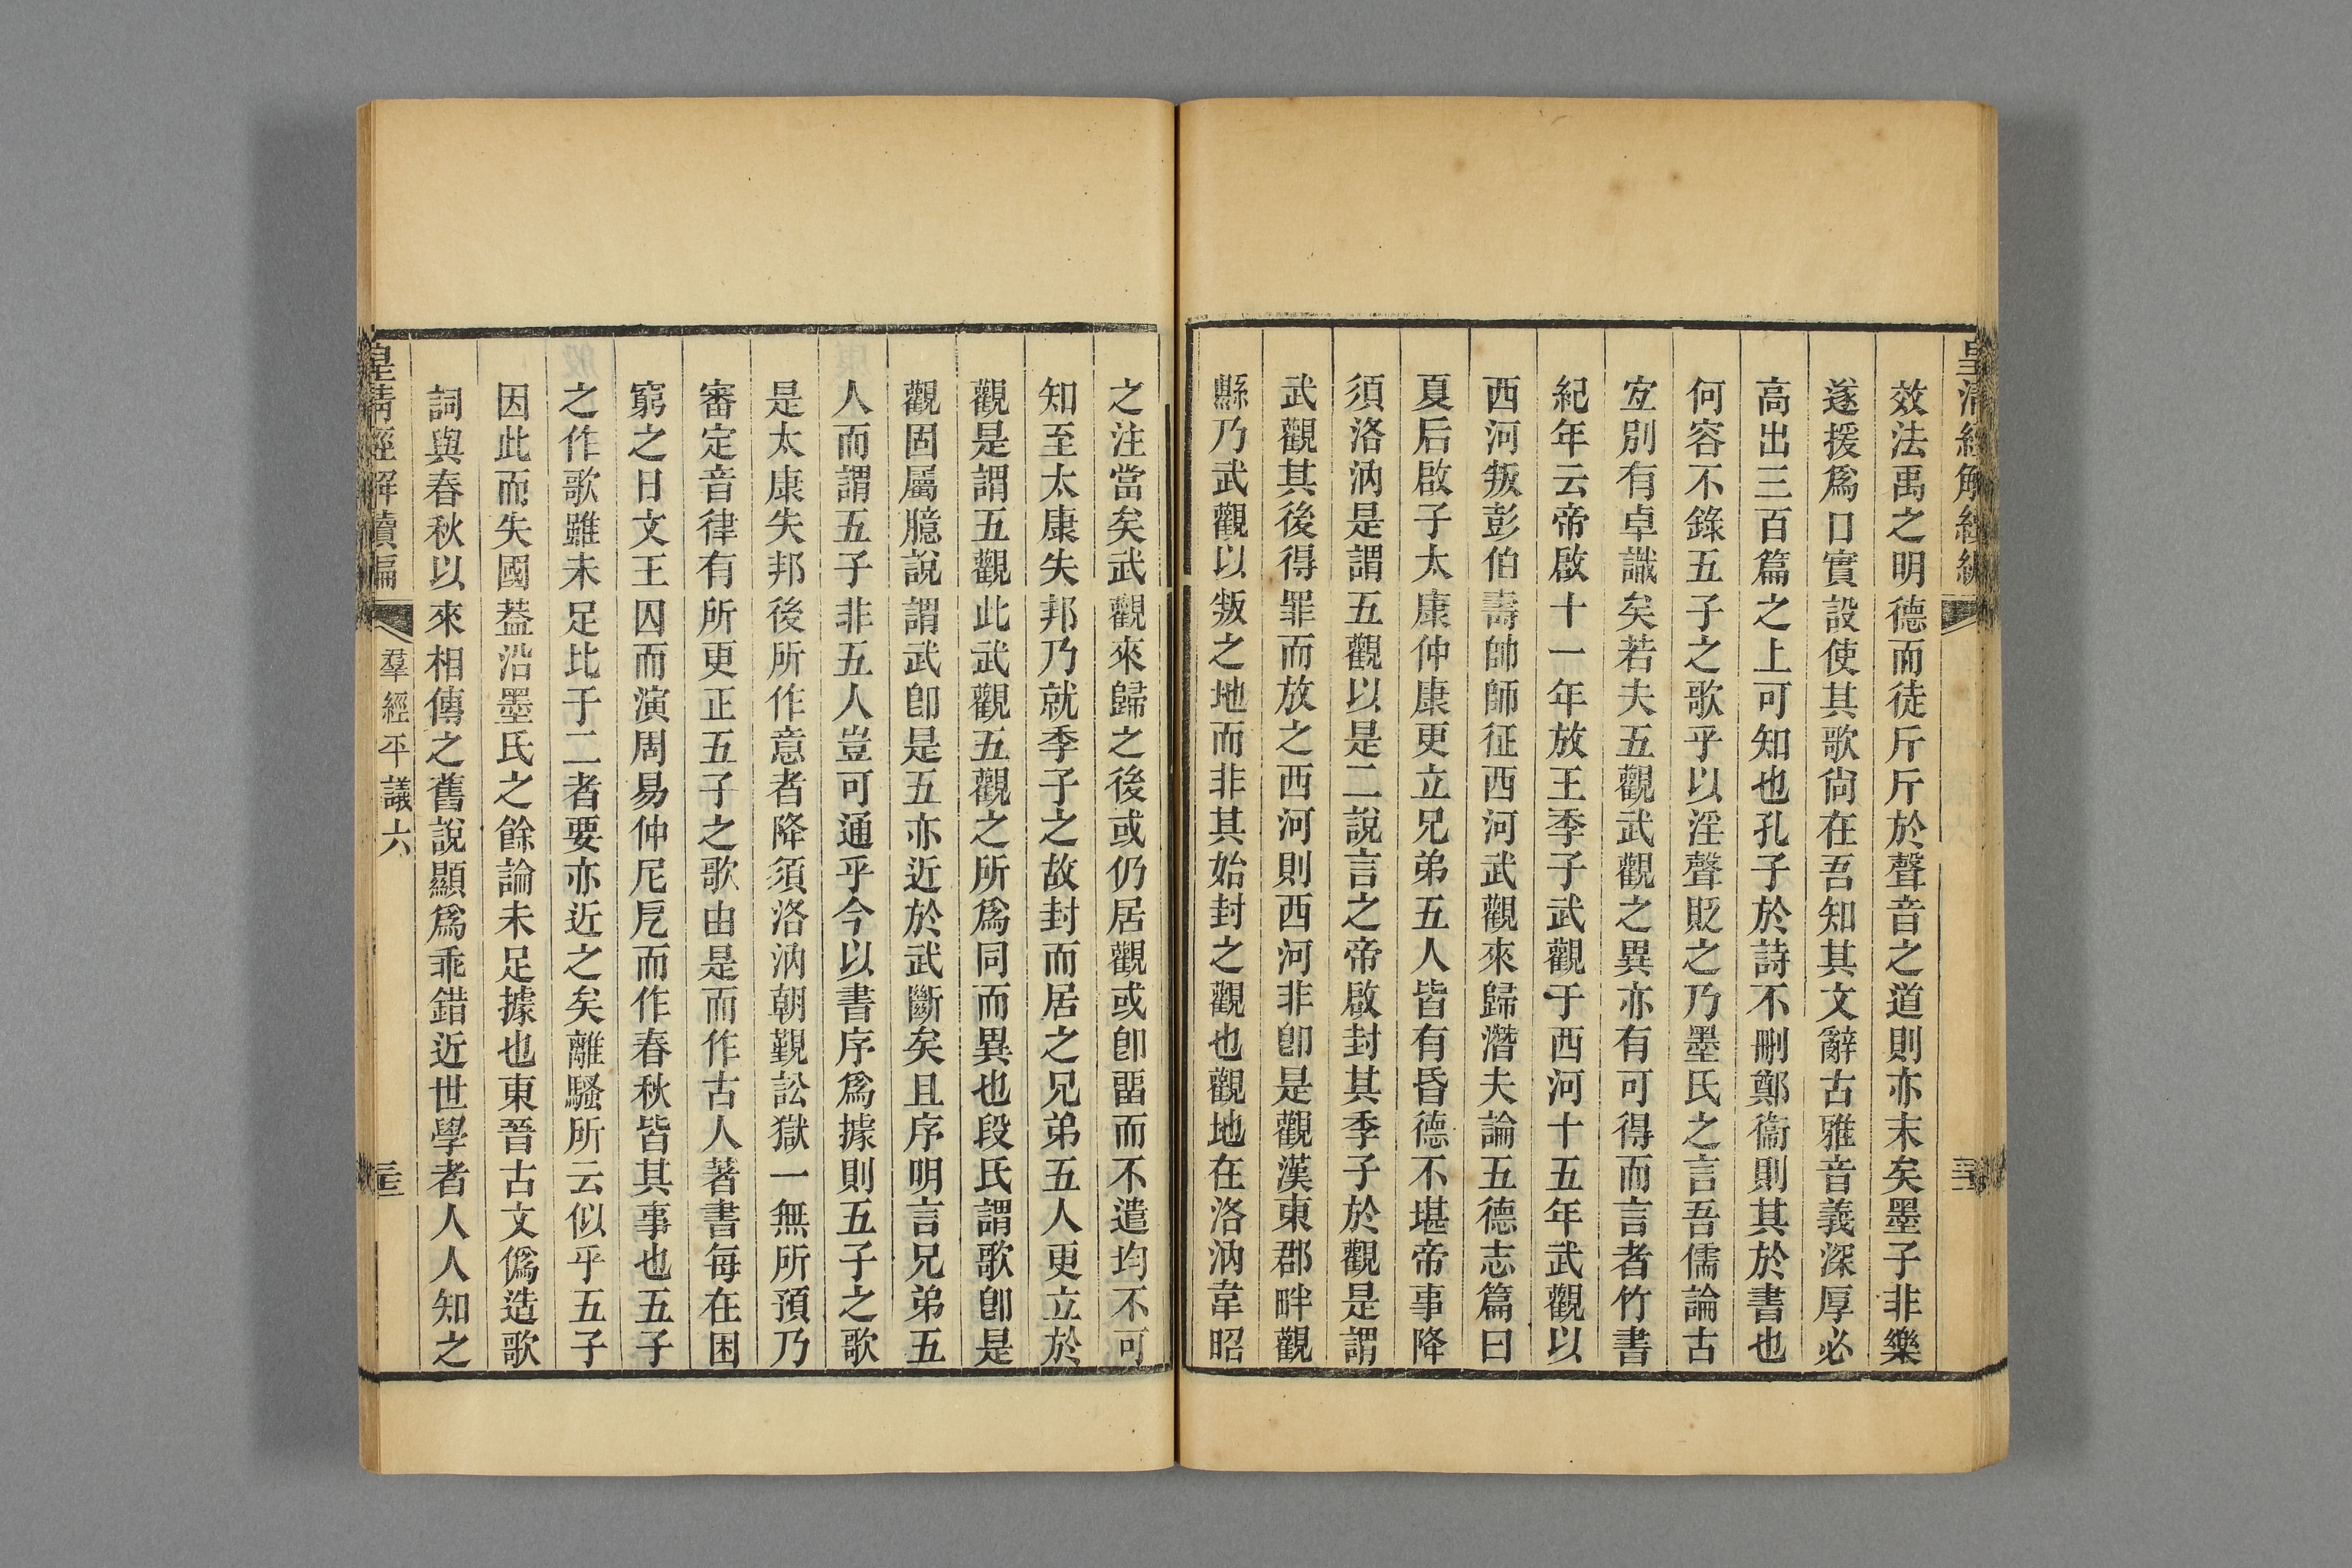 皇清經解續編
效法禹之明德而徒斤斤於聲音之道則亦末矣墨子非樂
遂援爲口實設使其歌尙在吾知其文辭古雅音義深厚必
高出三百篇之上可知也孔子於詩不刪鄭衞則其於書也
何容不錄五子之歌乎以淫聲貶之乃墨氏之言吾儒論古
宐別有卓識矣若夫五觀武觀之異亦有可得而言者竹書
紀年云帝啟十一年放王季子武觀于西河十五年武觀以
西河叛彭伯壽帥師征西河武觀來歸潛夫論五德志篇曰
夏后啟子太康仲康更立兄弟五人皆有昏德不堪帝事降
須洛汭是謂五觀以是二說言之帝啟封其季子於觀是謂
武觀其後得罪而放之西河則西河非卽是觀漢東郡畔觀
縣乃武觀以叛之地而非其始封之觀也觀地在洛汭韋昭
之注當矣武觀來歸之後或仍居觀或卽畱而不遣均不可
知至太康失邦乃就季子之故封而居之兄弟五人更立於
觀是謂五觀此武觀五觀之所爲同而異也段氏謂歌卽是
觀固屬臆說謂武卽是五亦近於武斷矣且序明言兄弟五
人而謂五子非五人豈可通乎今以書序爲據則五子之歌
是太康失邦後所作意者降須洛汭朝覲訟獄一無所預乃
審定音律有所更正五子之歌由是而作古人著書每在困
窮之日文王囚而演周易仲尼戹而作春秋皆其事也五子
之作歌雖未足比于二者要亦近之矣離騷所云似乎五子
因此而失國葢沿墨氏之餘論未足據也東晉古文僞造歌
詞與春秋以來相傳之舊說顯爲乖錯近世學者人人知之
皇清經解續編
羣經平議六